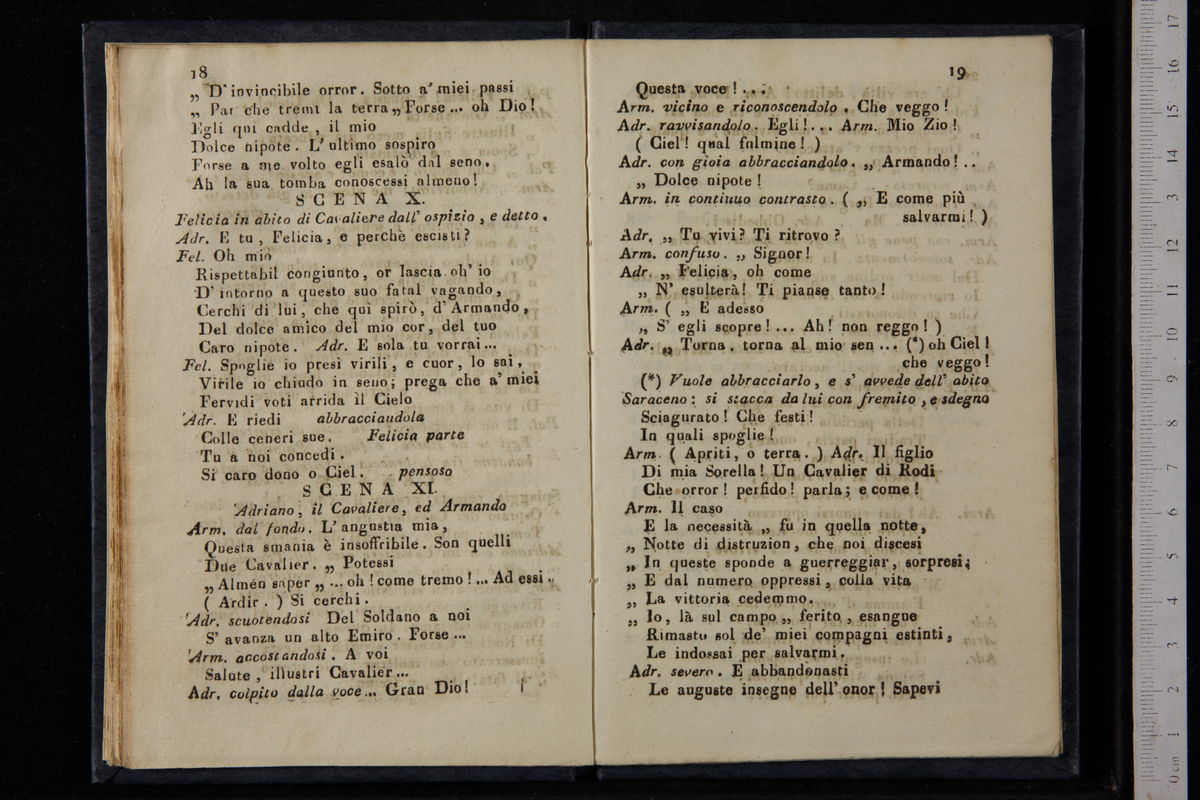 18
„ D' invincibile orror. Sotto a' miei passi
„ Par che tremi la terra „ Forse ... oh Dio!
Egli qui cadde, il mio
Dolce nipote. L' ultimo sospiro
Forse a me volto egli esalò dal seno.
Ah la sua tomba conoscessi almeno!
SCENA X.
Felicia in abito di Cavaliere dall' ospizio, e detto.
Adr. E tu, Felicia, e perchè escisti?
Fel. Oh mio
Rispettabil congiunto, or lascia oh' io
D' intorno a questo suo fatal vagando,
Cerchi di lui, che quì spirò, d' Armando,
Del dolce amico del mio cor, del tuo
Caro nipote. Adr. E sola tu vorrai...
Fel. Spoglie io presi virili, e cuor, lo sai,
Virile io chiudo in seno; prega che a' miei
Fervidi voti arrida il Cielo
Adr. E riedi abbracciandola
Colle ceneri sue. Felicia parte
Tu a noi concedi.
Si caro dono o Ciel. pensoso
SCENA XI.
Adriano, il Cavaliere, ed Armando
Arm. dal fondo. L' angustia mia,
Questa smania è insoffribile. Son quelli
Due Cavalier. „ Potessi
„ Almén saper „ ... oh! come tremo!... Ad essi..
( Ardir. ) Si cerchi.
Adr. scuotendosi Del Soldano a noi
S' avanza un alto Emiro. Forse ...
Arm. accostandosi. A voi
Salute, illustri Cavalier...
Adr. colpito dalla voce... Gran Dio!
19
Questa voce!...
Arm. vicino e riconoscendolo. Che veggo!
Adr. ravvisandolo. Egli!... Arm. Mio Zio!
( Ciel! qual fulmine! )
Adr. con gioia abbracciandolo. „ Armando!..
„ Dolce nipote!
Arm. in continuo contrasto. ( „ E come più
salvarmi! )
Adr. „ Tu vivi? Ti ritrovo?
Arm. confuso. „ Signor!
Adr. „ Felicia, oh come
„ N' esulterà! Ti pianse tanto!
Arm. ( „ E adesso
„ S' egli scopre! ... Ah! non reggo! )
Adr. „ Torna, torna al mio sen ... (*) oh Ciel!
che veggo!
(*) Vuole abbracciarlo, e s' avvede dell' abito
Saraceno: si stacca da lui con fremito, e sdegno
Sciagurato! Che festi!
In quali spoglie!
Arm. ( Apriti, o terra. ) Adr. Il figlio
Di mia Sorella! Un Cavalier di Rodi
Che orror! perfido! parla; e come!
Arm. Il caso
E la necessità „ fu in quella notte,
„ Notte di distruzion, che noi discesi
„ In queste sponde a guerreggiar, sorpresi;
„ E dal numero oppressi, colla vita
„ La vittoria cedemmo.
„ Io, là sul campo „ ferito, esangue
Rimasto sol de' miei compagni estinti,
Le indossai per salvarmi.
Adr. severo. E abbandonasti
Le auguste insegne dell' onor! Sapevi
0 cm 1 2 3 4 5 6 7 8 9 10 11 12 13 14 15 16 17